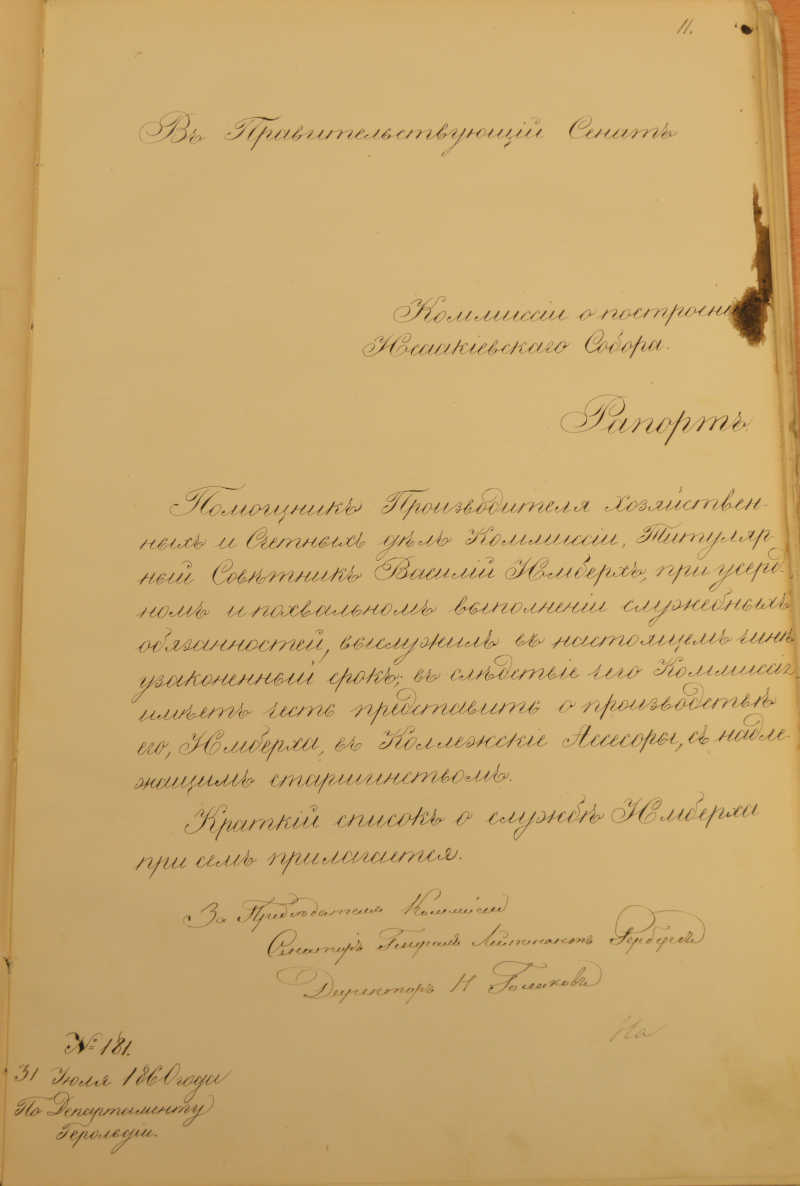 11.
Въ Правительствующій Сенатъ
Коммиссіи о построеніи
Исаакіевскаго Собора.
Рапортъ
Помощникъ Производителя хозяйствен-
ныхъ и Счетныхъ дѣлъ Коммиссіи, Титуляр-
ный Совѣтникъ Василій Имберхъ, при усерд-
номъ и похвальномъ выполненіи служебныхъ
обязанностей, выслужилъ въ настоящемъ чинѣ
узаконенный срокъ; въ слѣдствіе чего Коммиссія
имѣетъ честь представить о производствѣ
его, Имберха, въ Коллежскіе Ассесоры, съ надле-
жащимъ старшинствомъ.
Краткій списокъ о службѣ Имберха
при семъ прилагается.
За Предсѣдателя Коммисіи
Сенаторъ Генералъ Лейтенантъ
Директоръ Н Голиковъ
№ 181.
31 Іюля 1860 года
По Департаменту
Герольдіи.